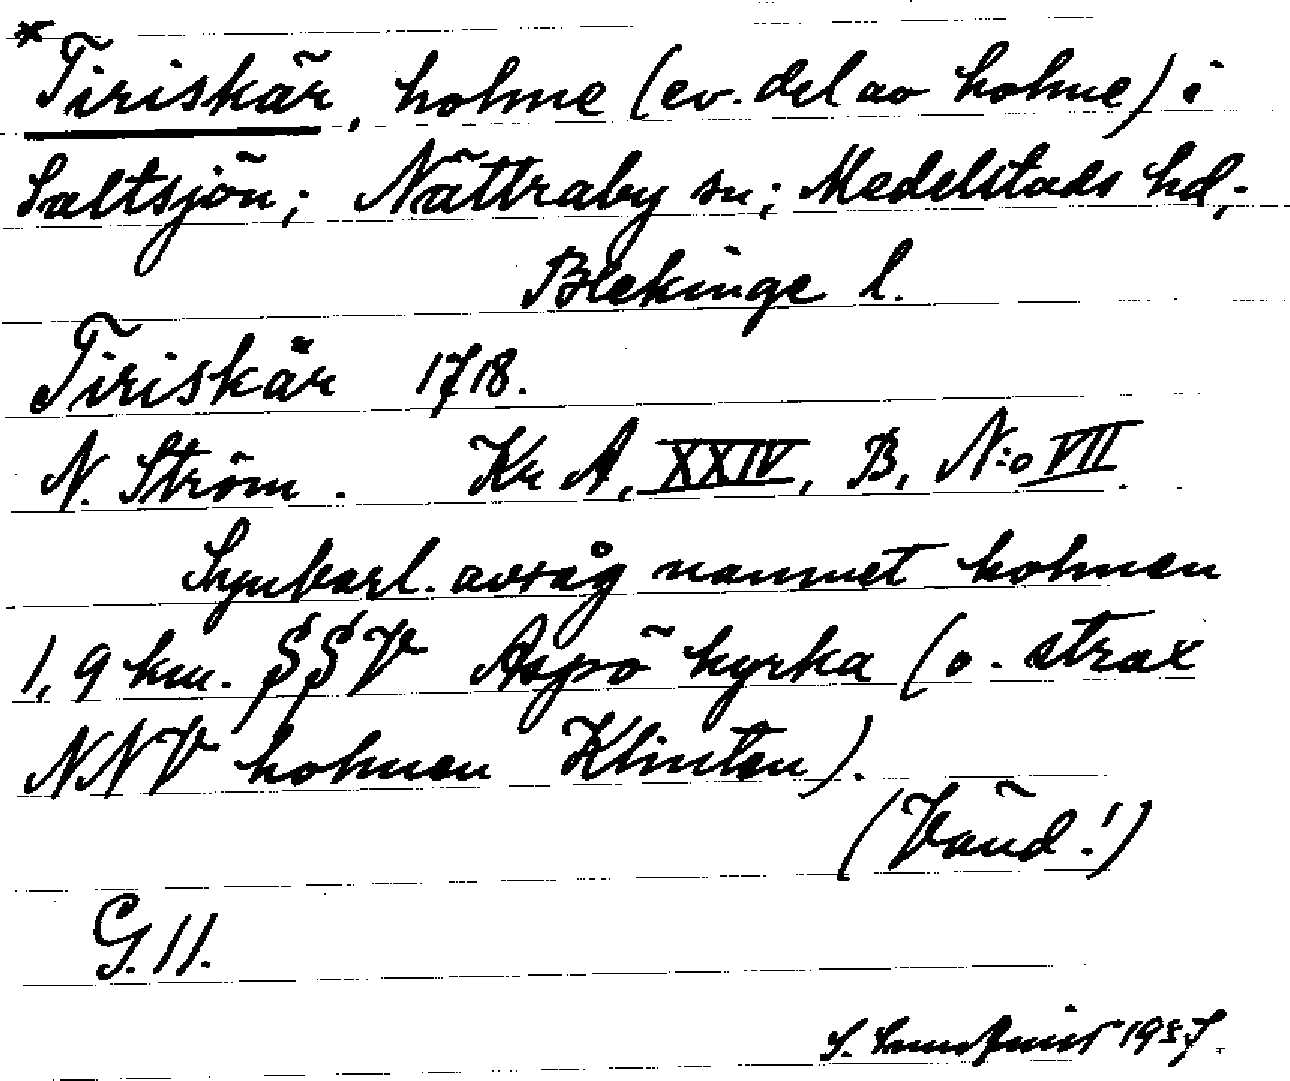 * Tiriskär, holme (ev. del av holme) i
Saltsjön; Nättraby sn; Medelstads hd,
Blekinge l.
Tiriskär 1718.
N. Ström. Kr A, XXIV, B, N:o VII.
Synbarl. avsåg namnet holmen
1,9 km. SSV Aspö kyrka (o. strax
NNV holmen Klinten).
(Vänd!)
G. 11.
S. 1957.